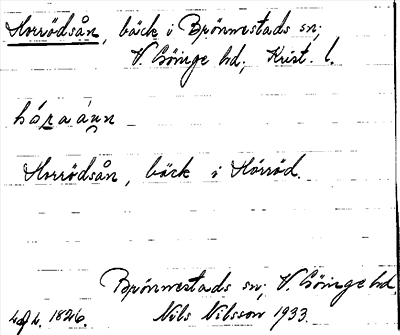 Horrödsån, bäck i Brönnestads sn;
V. Göinge hd; Krist. l.
hóraánn
Horrödsån, bäck i Hörröd.
Brönnestads sn; V. Göinge hd.
1826. Nils Nilsson 1933.